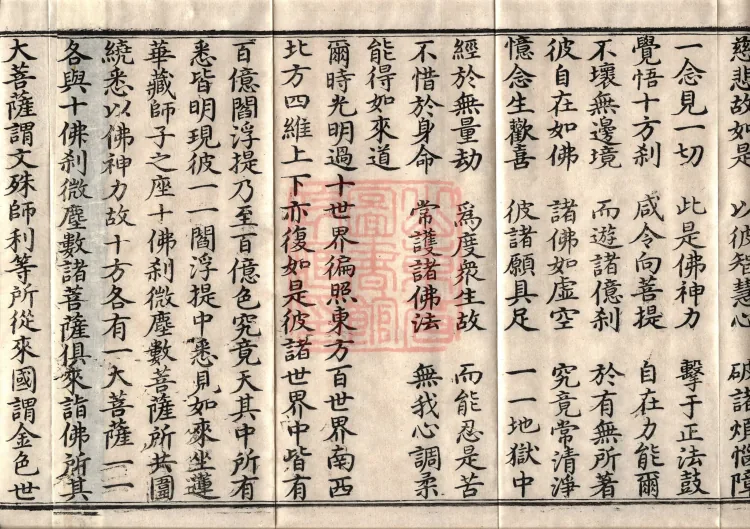 慈悲故如是 以彼智慧心 破諸煩惱障
一念見一切 此是佛神力 擊于正法鼓
覺悟十方刹 咸令向菩提 自在力能爾
不壞無邊境 而遊諸億刹 於有無所著
彼自在如佛 諸佛如虛空 究竟常清淨
憶念生歡喜 彼諸願具足 一一地獄中
經於無量劫 爲度衆生故 而能忍是苦
不惜於身命 常護諸佛法 無我心調柔
能得如來道
爾時光明過十世界徧照東方百世界南西
北方四維上下亦復如是彼諸世界中皆有
百億閻浮提乃至百億色究竟天其中所有
悉皆明現彼一一閻浮提中悉見如來坐蓮
華藏師子之座十佛刹微塵數菩薩所共圍
繞悉以佛神力故十方各有一大菩薩一一
各與十佛刹微塵數諸菩薩俱來詣佛所其
大菩薩謂文殊師利等所從來國謂金色世